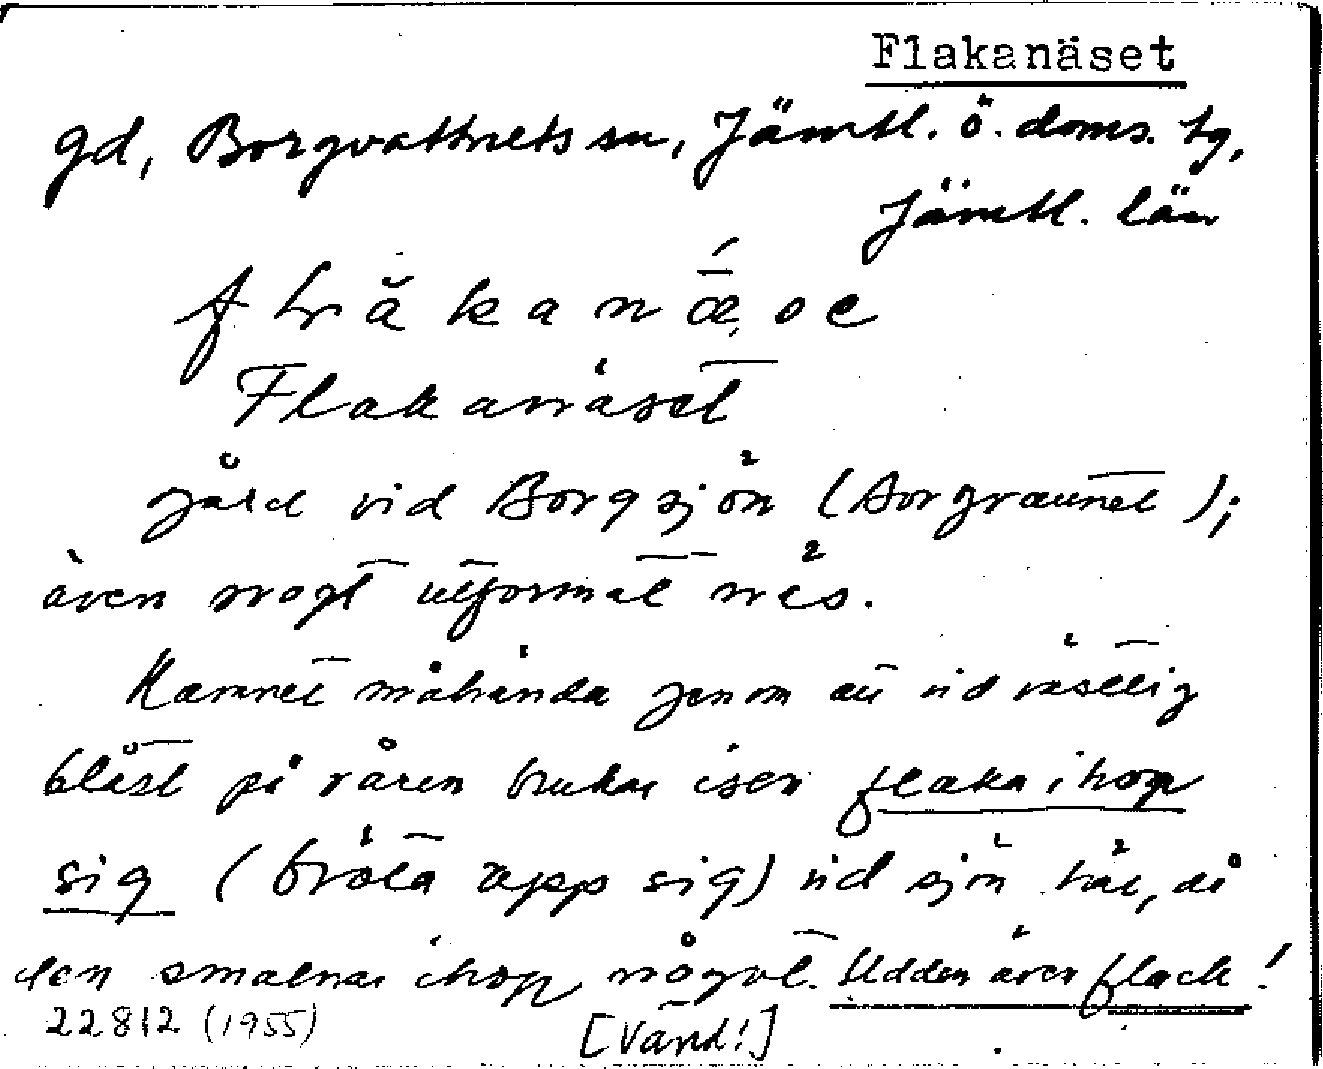 Flakanäset
gd, Borgvattnets sn, Jämtl. ö. doms. tg,
Jämtl. län
Flakanäset
gård vid Borgsjön (Borgvattnet);
även svagt utformat näs.
Namnet måhända genom att vid västlig
blåst på våren brukar isen flaka ihop
sig (bröta upp sig) vid sjön här, då
den smalnar ihop något. Udden även flack!
22812 (1955) [Vänd!]